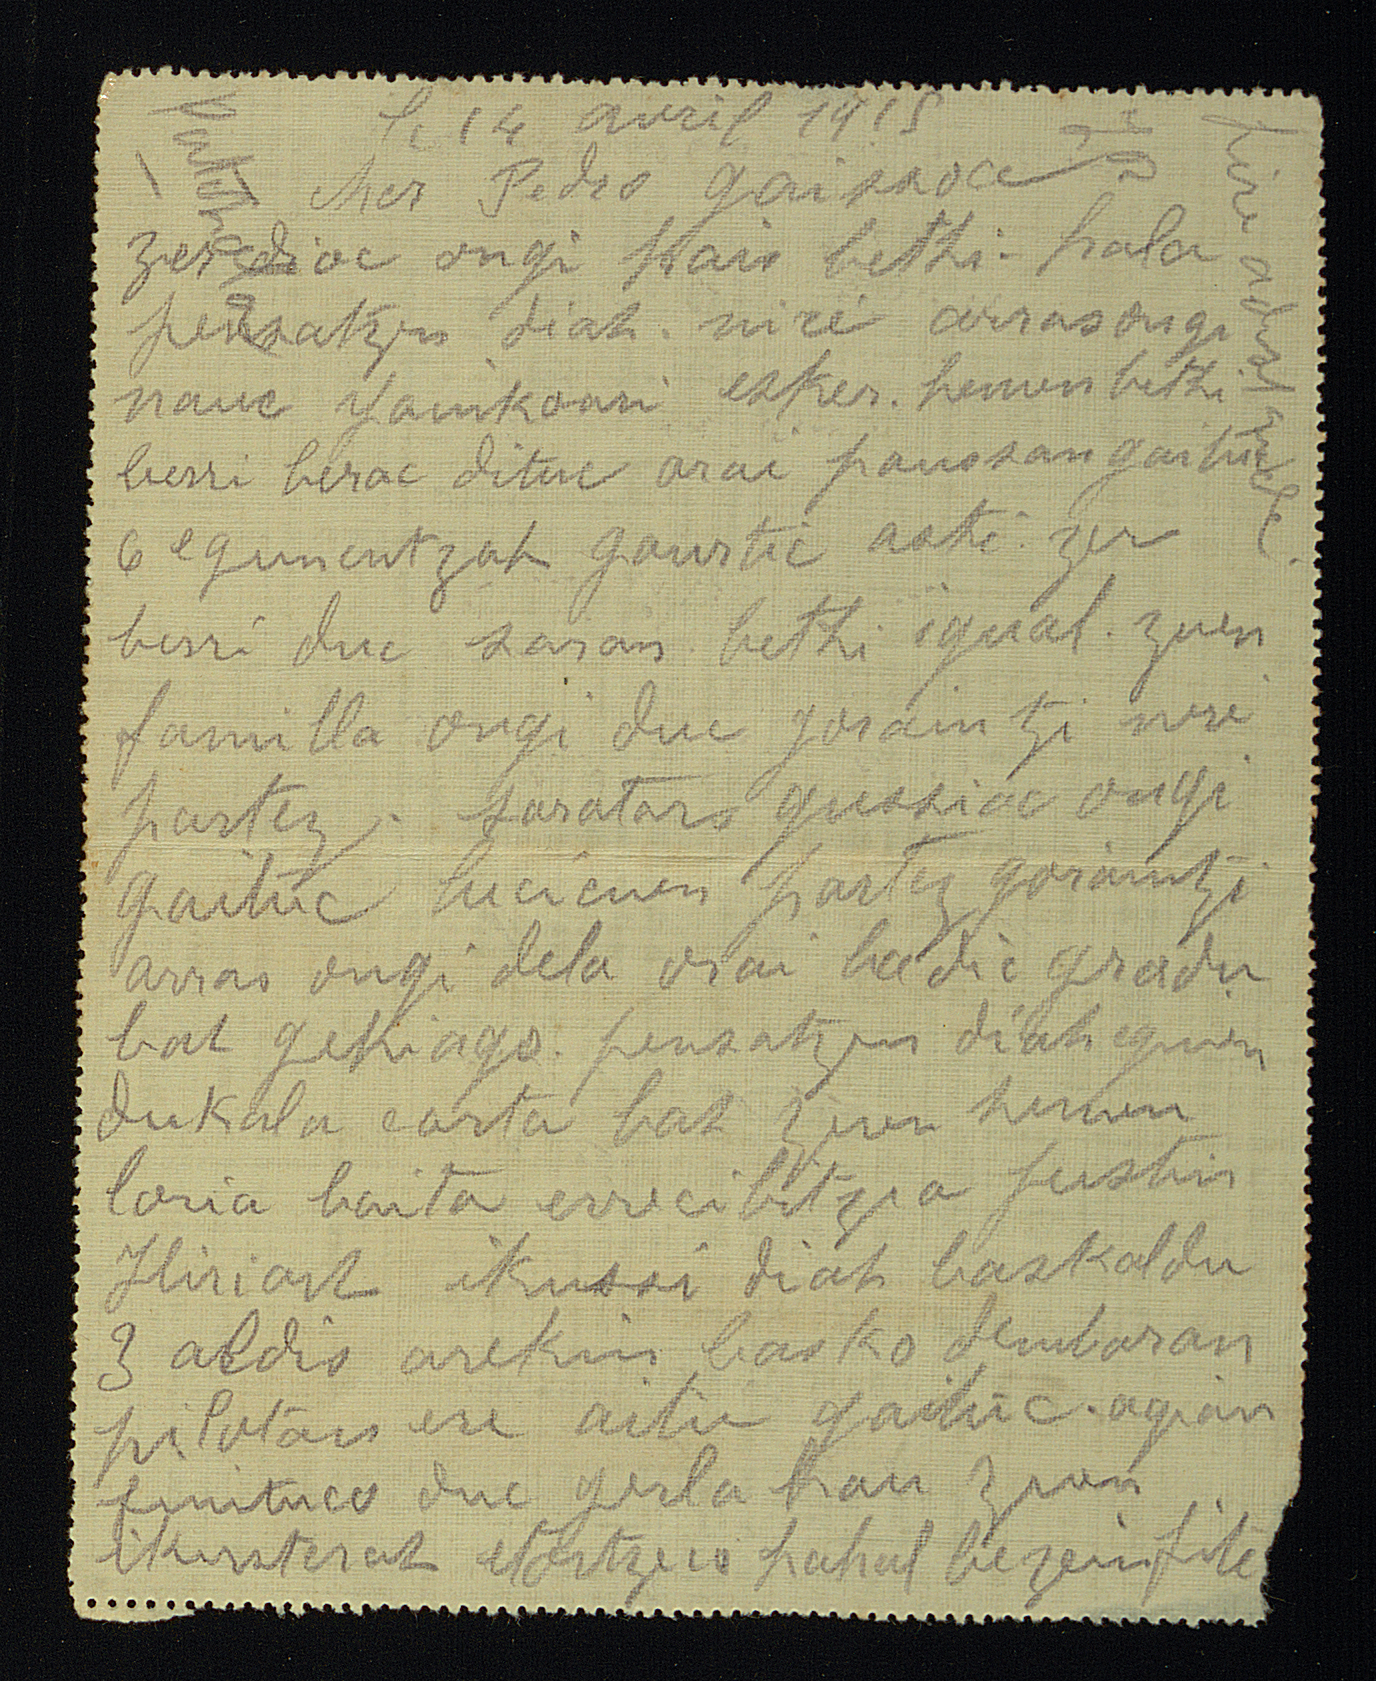 le 14 avril 1915
cher Pedro gaissoa
zer dioc ongi hais bethi. hala
pensatzen diat. nire arras ongi
nauc yainkoari esker. hemen bethi
berri berac dituc orai paussan gaituc
6 egunentzat gaurtic asti. zer
berri duc saran bethi igual. zuen
familla ongi duc goraintzi nere
partez. saratars gussiac ongi
gaituc lucienen partez goraintzi
arras ongi dela orai badic gradu
bat gehiago. pensatzen diat eguien
dukala carta bat zuen hemen
loria baita errecibitzea justin
Hiriart ikussi diat baskaldu
3 aldis arekin basko dembaran
pilotan ere aitu gaituc. agian
finituco duc gerla hau zuen
ikusterat etortzeco hahal bezein fite